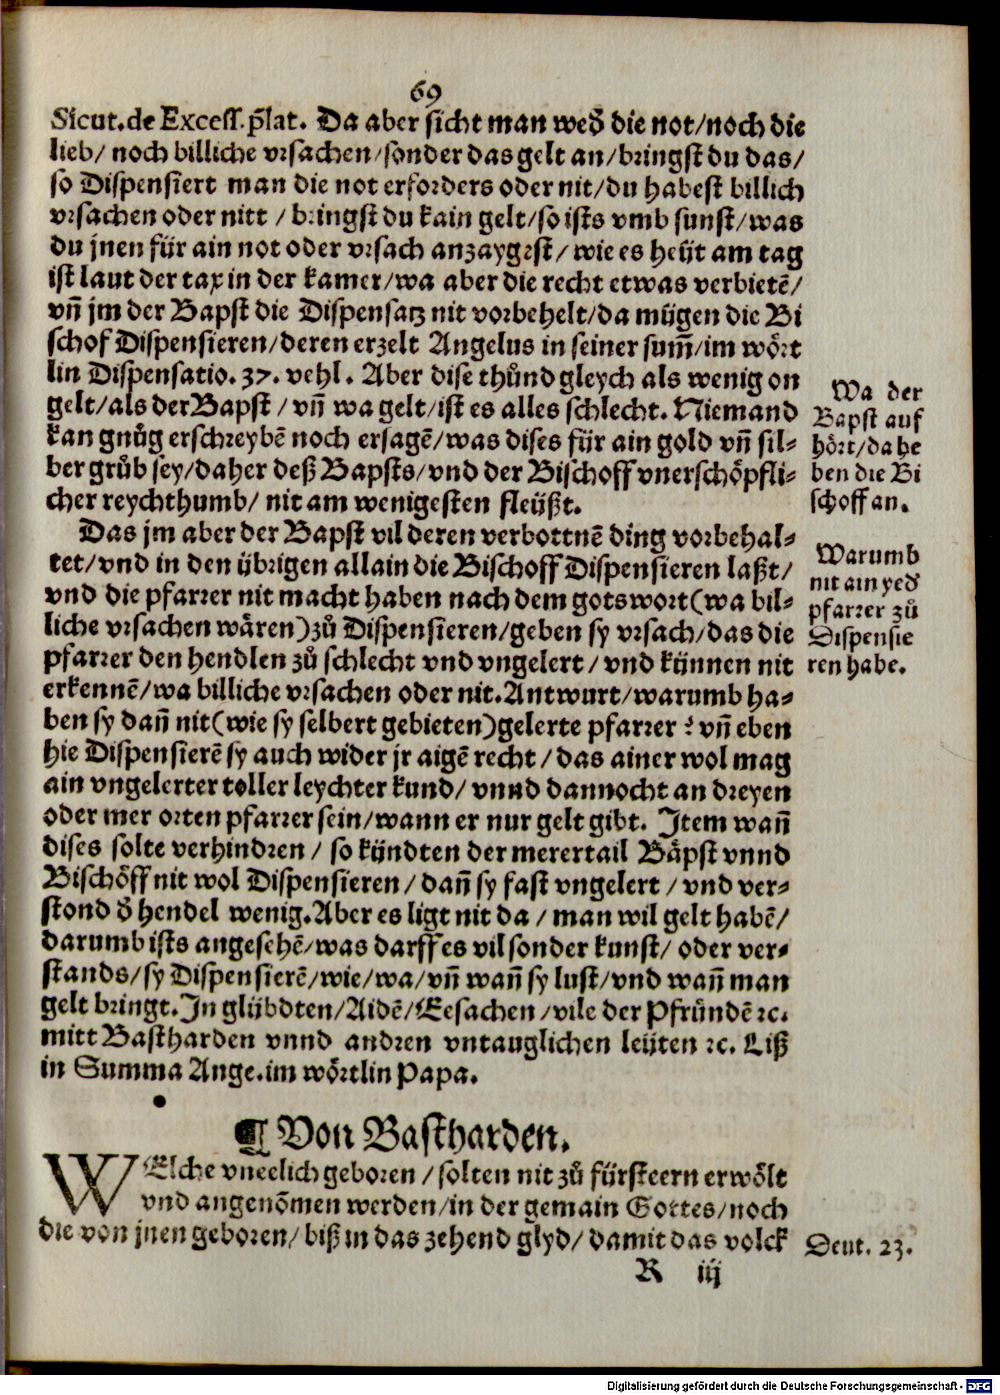 69
Sicut.de Excess. p̄lat. Da aber sicht man wed̕ die not/noch die
lieb/ noch billiche vrsachen/sonder das gelt an/bringst du das/
so Dispensiert man die not erforders oder nit/du habest billich
vrsachen oder nitt / bringst du kain gelt/so ists vmb sunst/was
du jnen für ain not oder vrsach anzaygest/ wie es heüt am tag
ist laut der tax in der kamer/wa aber die recht etwas verbietē/
vn̄ jm der Bapst die Dispensatz nit vorbehelt/da mügen die Bi
schof Dispensieren/deren erzelt Angelus in seiner sum̄/im wört
lin Dispensatio. 37. vehl. Aber dise thůnd gleych als wenig on
gelt/als der Bapst / vn̄ wa gelt/ist es alles schlecht. Niemand
kan gnůg erschreybē noch ersagē/was dises für ain gold vn̄ sil-
ber grůb sey/daher deß Bapsts/vnd der Bischoff vnerschöpfli-
cher reychthumb/ nit am wenigesten fleüßt.
Wa der
Bapst auf
hört/da he
ben die Bi
schoff an.
Das jm aber der Bapst vil deren verbottnē ding vorbehal-
tet/vnd in den übrigen allain die Bischoff Dispensieren laßt/
vnd die pfarrer nit macht haben nach dem gotswort(wa bil-
liche vrsachen wären)zů Dispensieren/geben sy vrsach/das die
pfarrer den hendlen zů schlecht vnd vngelert / vnd künnen nit
erkennē/wa billiche vrsachen oder nit.Antwurt/warumb ha-
ben sy dan̄ nit(wie sy selbert gebieten)gelerte pfarrer? vn̄ eben
hie Dispensierē sy auch wider jr aigē recht / das ainer wol mag
ain vngelerter toller leychter kund/ vnnd dannocht an dreyen
oder mer orten pfarrer sein/wann er nur gelt gibt. Item wan̄
dises solte verhindren / so kündten der merertail Bäpst vnnd
Bischöff nit wol Dispensieren / dan̄ sy fast vngelert / vnd ver-
stond d̕ hendel wenig.Aber es ligt nit da / man wil gelt habē/
darumb ists angesehē/was darff es vil sonder kunst/ oder ver-
stands/sy Dispensierē/wie/wa/vn̄ wan̄ sy lust/vnd wan̄ man
gelt bringt.In glübdten/Aidē/Eesachen/vile der Pfründē ꝛc.
mitt Bastharden vnnd andren vntauglichen leüten ꝛc. Liß
in Summa Ange.im wörtlin Papa.
Warumb
nit ain yed̕
pfarrer zů
Dispensie
ren habe.
¶ Von Bastharden.
WElche vneelich geboren / solten nit zů fürsteern erwölt
vnd angenōmen werden/in der gemain Gottes/noch
die von jnen geboren/ biß in das zehend glyd/ damit das volck
Deut. 23.
R iij
Digitalisierung gefördert durch die Deutsche Forschungsgemeinschaft - DFG